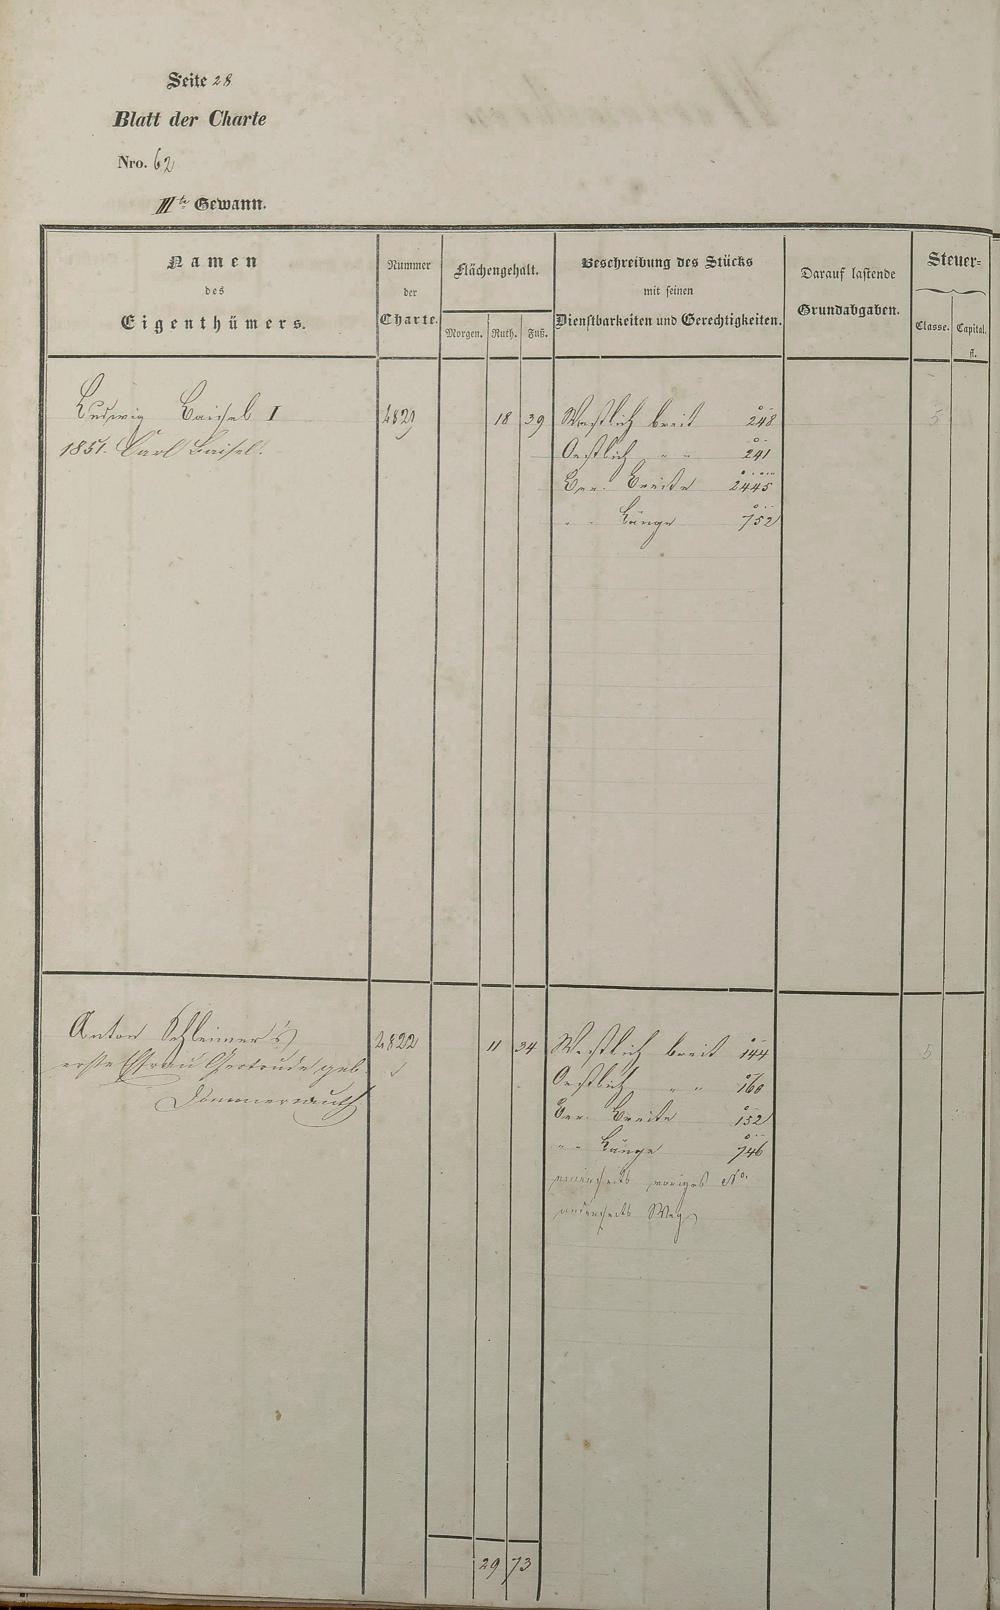 Seite 28
Blatt der Charte
Nro. 62
IIte Gewann.
Namen
des
Eigenthümers.
Nummer
der
Charte.
Flächengehalt.
Morgen. Ruth. Fuß.
Beschreibung des Stücks
mit seinen
Dienstbarkeiten und Gerechtigkeiten.
Darauf lastende
Grundabgaben.
Steuer-
Classe. Capital.
fl.
Ludwig Baisel I 4821 18 39 Westlich breit 248 5
1851. Carl Baisel. Oestlich " " 241
Ber. Breite 2445
" " Länge 752
Anton Schleimer's 4822 11 34 Westlich breit 144 5
erste Ehefrau Gertrude geb. Oestlich " " 160
Dommermuth Ber. Breite 152
" " Länge 746
einerseits voriges No.
anderseits Weg
29 73